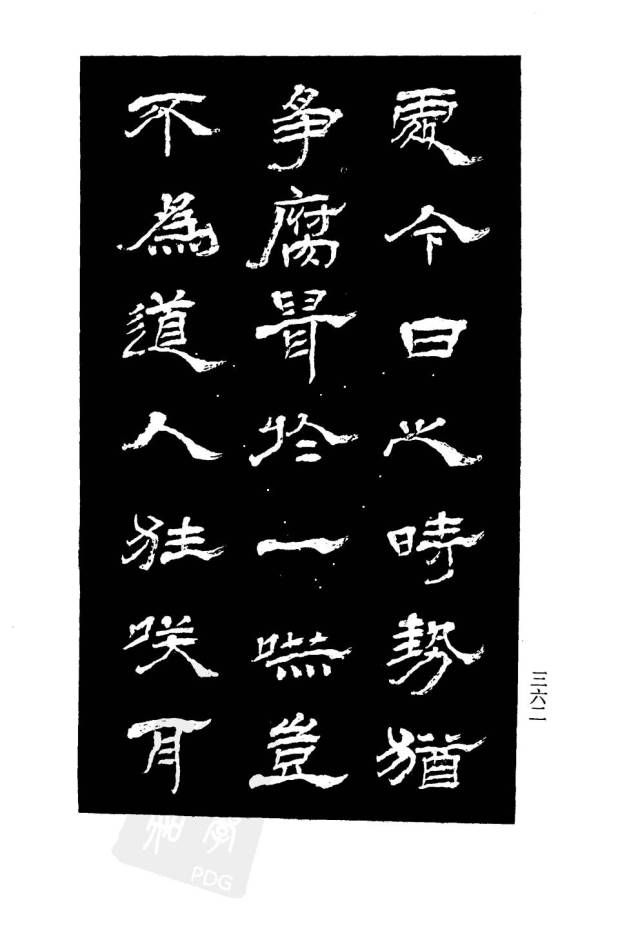 處今日之時勢猶
爭腐鼠於一嚇豈
不為道人狂咲耳
三六二
PDG